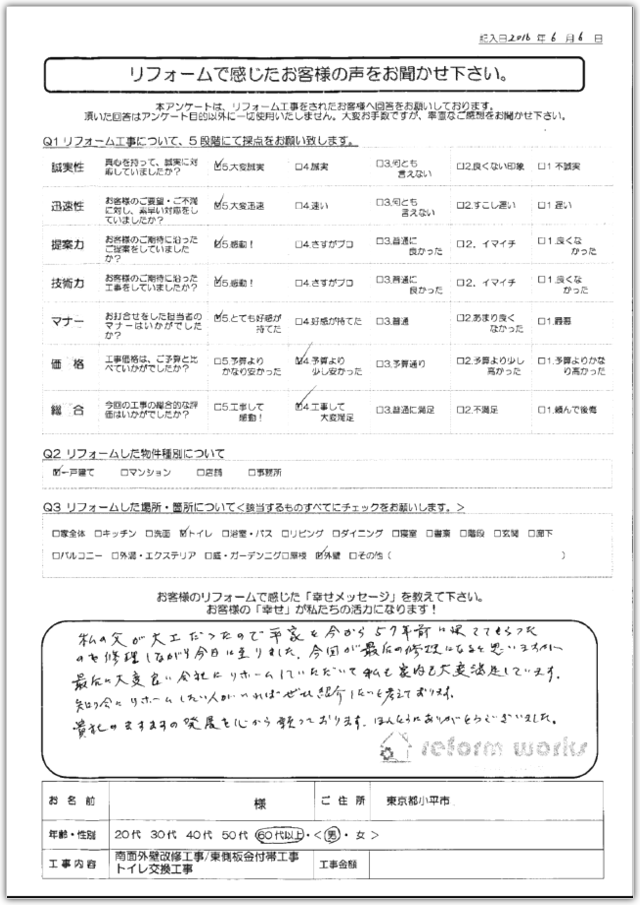 記入日2016 年 6 月 6 日
リフォームで感じたお客様の声をお聞かせ下さい。
本アンケートは、リフォーム工事をされたお客様へ回答をお願いしております。
頂いた回答はアンケート目的以外に一切使用いたしません。大変お手数ですが、率直なご感想をお聞かせ下さい。
Q1 リフォーム工事について、5段階にて採点をお願い致します。
誠実性 真心を持って、誠実に対応していましたか? ☑5.大変誠実 □4.誠実 □3.何とも言えない □2.良くない印象 □1 不誠実
迅速性 お客様のご要望・ご不満に対し、素早い対応をしていましたか? ☑5.大変迅速 □4.速い □3.何とも言えない □2.すこし遅い □1 遅い
提案力 お客様のご期待に沿ったご提案をしていましたか? ☑5.感動! □4.さすがプロ □3.普通に良かった □2. イマイチ □1.良くなかった
技術力 お客様のご期待に沿った工事をしていましたか? ☑5.感動! □4.さすがプロ □3.普通に良かった □2. イマイチ □1.良くなかった
マナー お打合せをした担当者のマナーはいかがでしたか? ☑5.とても好感が持てた □4.好感が持てた □3.普通 □2.あまり良くなかった □1.最悪
価 格 工事価格は、ご予算と比べていかがでしたか? □5.予算よりかなり安かった ☑4.予算より少し安かった □3.予算通り □2.予算より少し高かった □1.予算よりかなり高かった
総 合 今回の工事の総合的な評価はいかがでしたか? □5.工事して感動! ☑4.工事して大変満足 □3.普通に満足 □2.不満足 □1.頼んで後悔
Q2 リフォームした物件種別について
☑一戸建て □マンション □店舗 □事務所
Q3 リフォームした場所・箇所について<該当するものすべてにチェックをお願いします。>
□家全体 □キッチン □洗面 ☑トイレ □浴室・バス □リビング □ダイニング □寝室 □書斎 □階段 □玄関 □廊下
□バルコニー □外溝・エクステリア □庭・ガーデニング □屋根 ☑外壁 □その他 ( )
お客様のリフォームで感じた「幸せメッセージ」を教えて下さい。
お客様の「幸せ」が私たちの活力になります!
私の父が大工だったので平家を今から57年前に建ててもらった
のを修理しながら今日に至りました。今回が最后の修理になると思いますが
最后に大変良い会社にリホームしていただいて私も家内も大変満足しています。
知り合にリホームしたい人がいればぜひ紹介したいと考えております。
貴社のますますの発展を心から願っております。ほんとうにありがとうございました。
reform works
お 名 前 様 ご 住 所 東京都小平市
年齢・性別 20代 30代 40代 50代 60代以上・<男・女>
工事内容 南面外壁改修工事/東側板金付帯工事 工事金額
トイレ交換工事